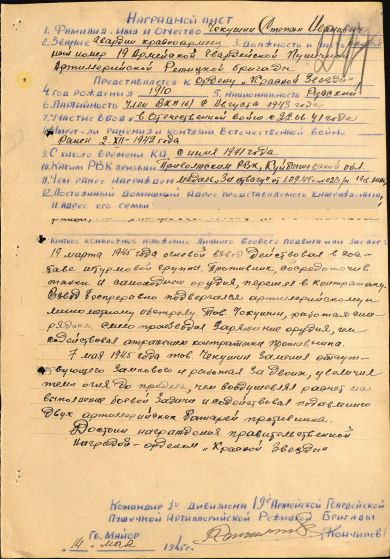 Наградной лист
1. Фамилия, имя и отчество Чекушин Степан Иванович
2. Звание Гвардии красноармеец 3. Должность и часть
номер 19 Армейской Гвардейской Пушечной
Артиллерийской Режицкой бригады
Представляется к Ордену „Красной Звезды“
4. Год рождения 1910 5. Национальность Русский
6. Партийность Член ВКП(б) с Августа 1943 года
7. Участие в боях в Отечественной войне с 22.06.41 года
8. Имеет-ли ранения и контузии в отечественной войне
Ранен 2-XII-1943 года
9. С какого времени в КА с июля 1941 года
10. Каким РВК призван Приволжским РВК, Куйбышевской обл.
11. Чем ранее награжден медаль „За отвагу“
12. Постоянный домашний адрес представляемого к награждению,
и адрес его семьи
Краткое конкретное изложение личного боевого подвига или заслуг:
19 марта 1945 года огневой взвод действовал в сос-
таве штурмовой группы. Противник, сосредоточив
танки и самоходные орудия, перешел в контратаку.
Взвод беспрерывно подвергался артиллерийскому и
минометному обстрелу. Тов. Чекушин, работая сна-
рядным смело производил заряжание орудия, чем
содействовал отражению контратаки противника.
7 мая 1945 года тов. Чекушин заменив отсут-
ствующего замкового и работая за двоих, увеличил
темп огня до предела, чем воодушевлял расчет на
выполнение боевой задачи и содействовал подавлению
двух артиллерийских батарей противника.
Достоин награждения правительственной
наградой – орденом „Красной Звезды“
Командир 1го дивизиона 19й Армейской Гвардейской
Пушечной Артиллерийской Режицкой Бригады
Гв. Майор (Кончилов)
„14“ мая 1945г.